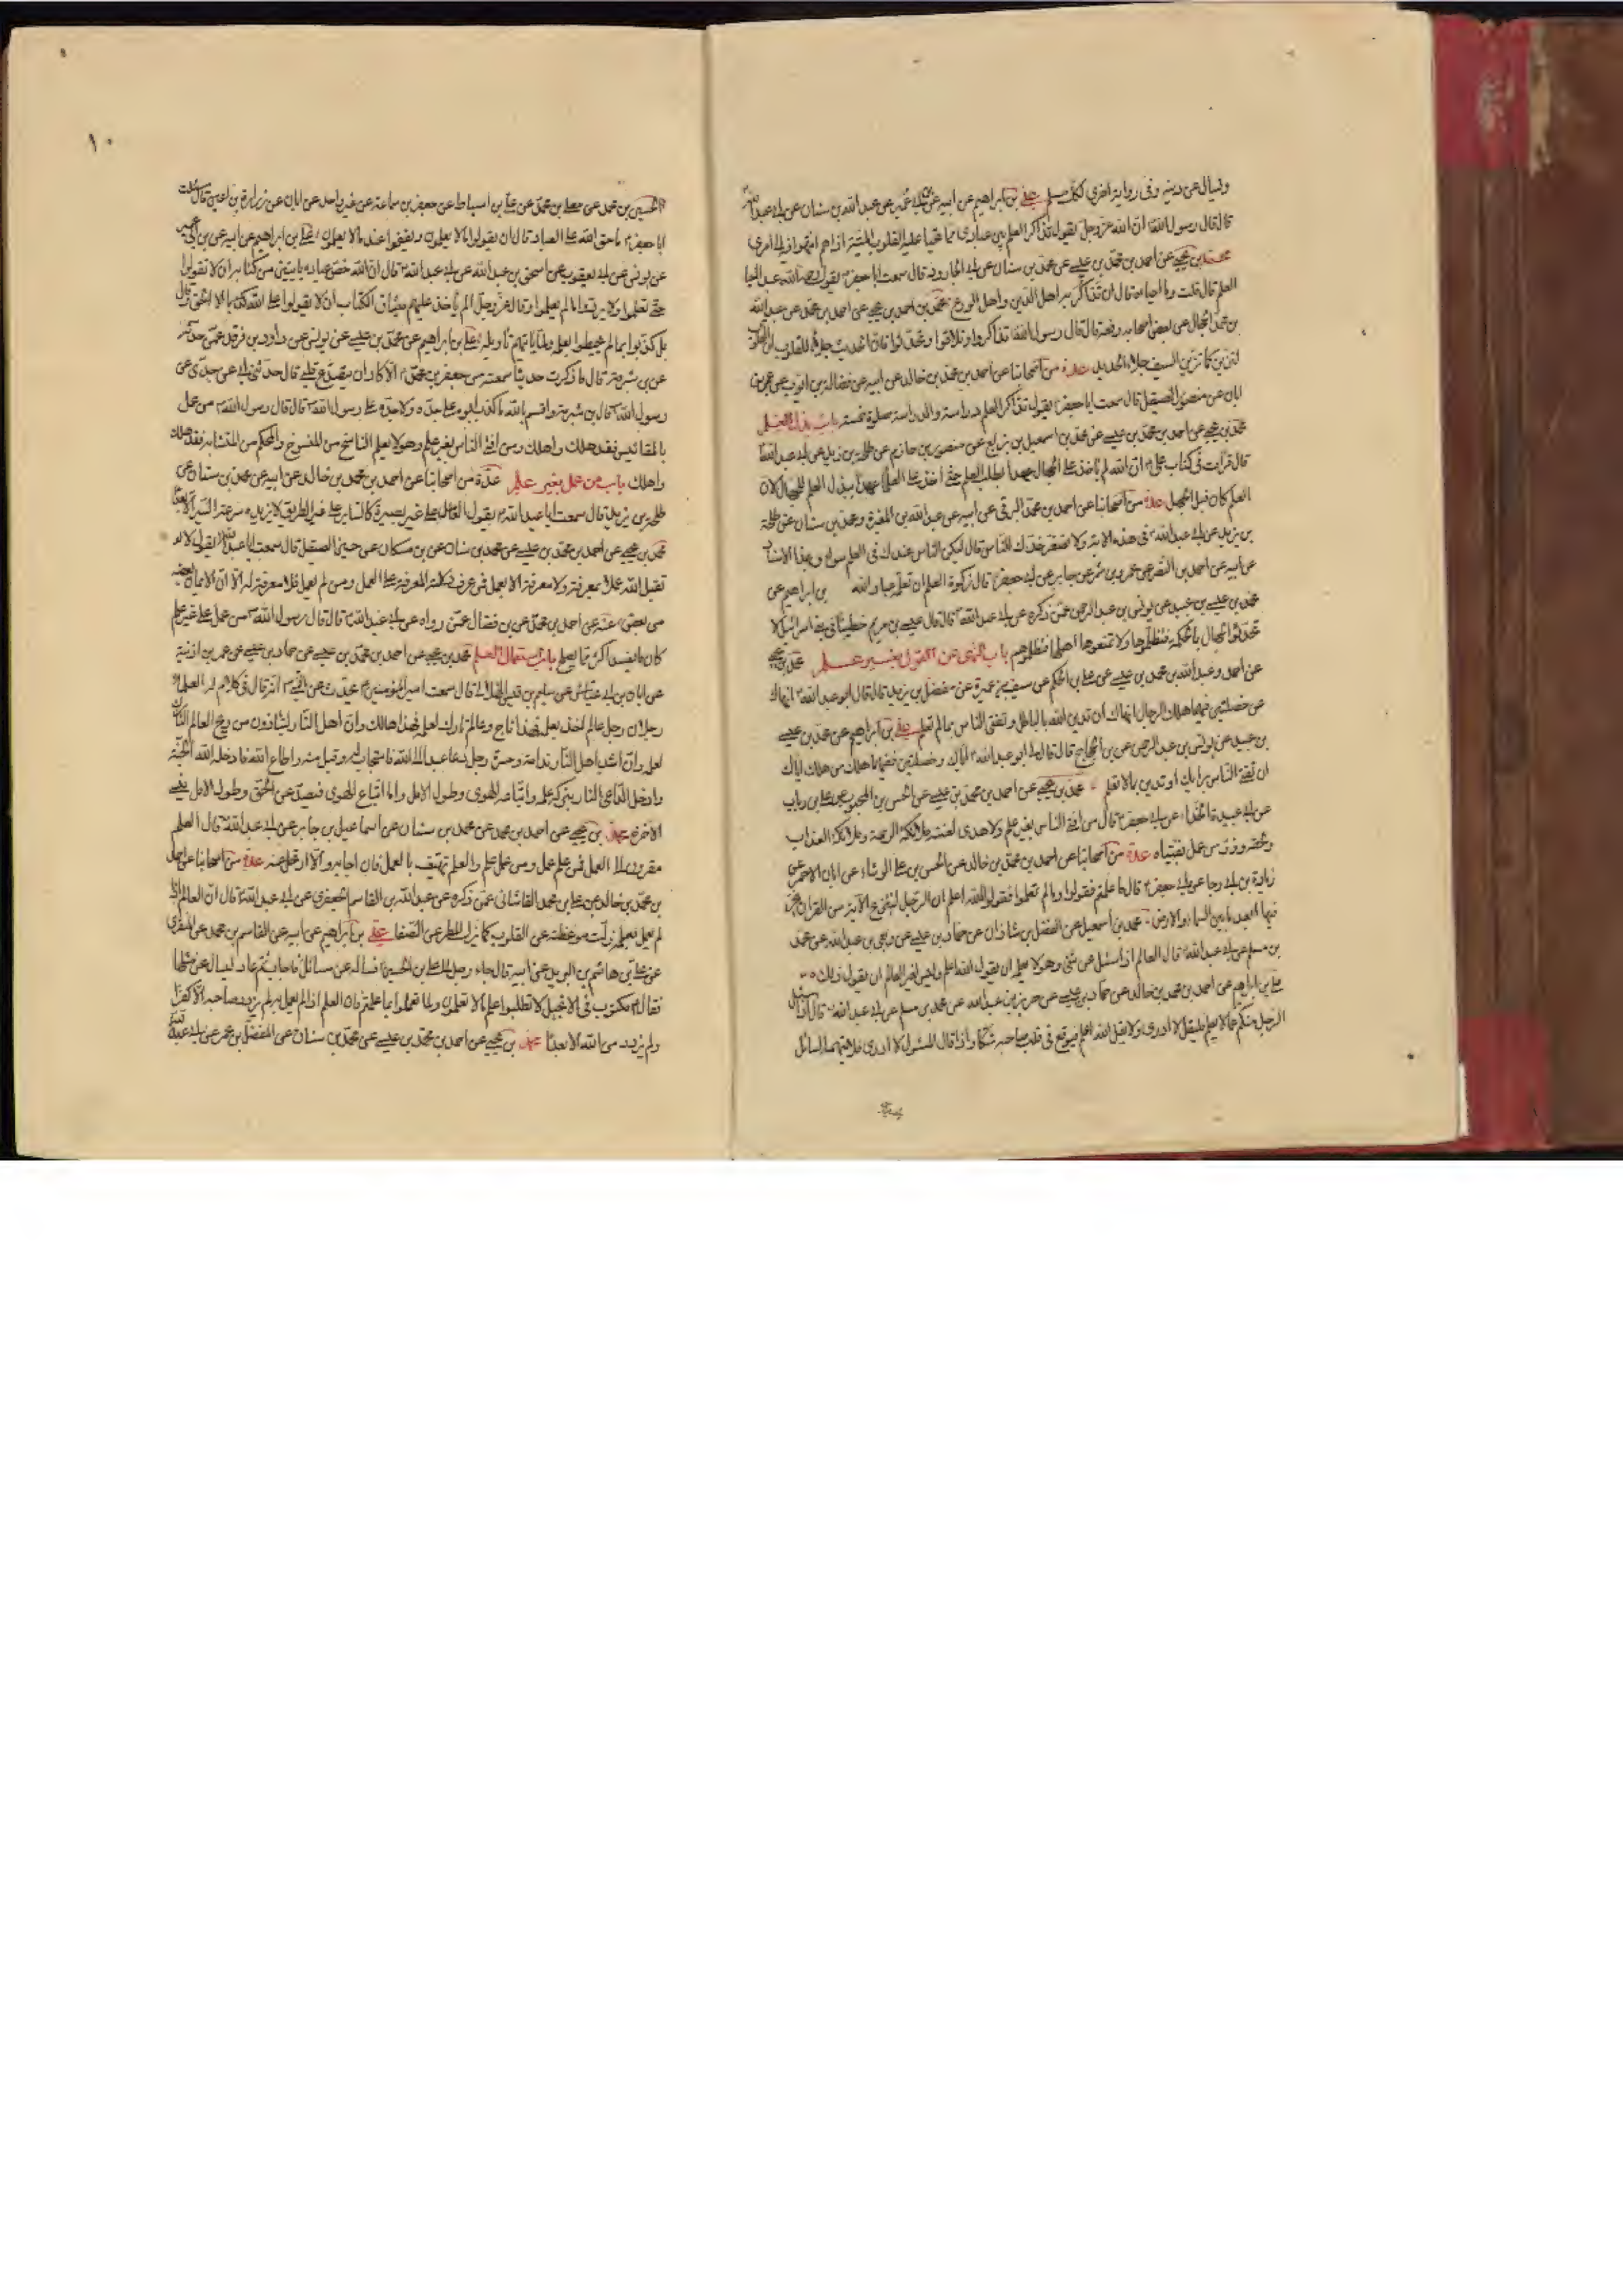 ويسأل عن دينه وفى رواية اخرى لكل مسلم على بن ابراهيم عن ابيه عن عبد الله بن سنان عن ابى عبد الله
قال قال رسول الله ان الله عز وجل يقول تذاكر العلم بين عبادى مما تحيا عليه القلوب الميتة اذا هم انتهوا فيه الى امرى
محمد بن يحيى عن احمد بن محمد بن عيسى عن محمد بن سنان عن ابى الجارود قال سمعت ابا جعفر يقول رحم الله عبدا احيا
العلم قال قلت وما احياءه قال ان يذاكر به اهل الدين واهل الورع محمد بن يحيى عن احمد بن محمد عن عبد الله
بن محمد الحجال عن بعض اصحابه رفعه قال قال رسول الله تذاكروا وتلاقوا وتحدثوا فان الحديث جلاء للقلوب ان القلوب
لترين كما ترين السيف جلاء الحديد عدة من اصحابنا عن احمد بن محمد بن خالد عن ابيه عن فضالة بن ايوب عن عمر بن
ابان عن منصور الصيقل قال سمعت ابا جعفر يقول تذاكر العلم دراسة والدراسة صلوة حسنة باب بذل العلم
محمد بن يحيى عن احمد بن محمد بن عيسى عن محمد بن اسمعيل بن بزيع عن منصور بن حازم عن طلحة بن زيد عن ابى عبد الله
قال قرات فى كتاب على ان الله لم ياخذ على الجهال عهدا بطلب العلم حتى اخذ على العلماء عهدا ببذل العلم للجهال لان
العلم كان قبل الجهل عدة من اصحابنا عن احمد بن محمد البرقى عن ابيه عن عبد الله بن المغيرة ومحمد بن سنان عن طلحة
بن زيد عن ابى عبد الله فى هذه الاية ولا تصعر خدك للناس قال ليكن الناس عندك فى العلم سواء وبهذا الاسناد
عن ابيه عن احمد بن النضر عن عمرو بن شمر عن جابر عن ابى جعفر قال زكوة العلم ان تعلمه عباد الله بن ابراهيم عن
محمد بن عيسى بن عبيد عن يونس بن عبد الرحمن عمن ذكره عن ابى عبد الله قال قام عيسى بن مريم خطيبا فى بنى اسرائيل لا
تحدثوا الجهال بالحكمة فتظلموها ولا تمنعوها اهلها فتظلموهم باب النهى عن القول بغير علم محمد بن يحيى
عن احمد وعبد الله بن محمد بن عيسى عن على بن الحكم عن سيف بن عميرة عن مفضل بن يزيد قال قال ابو عبد الله انهاك
عن خصلتين فيهما هلاك الرجال انهاك ان تدين الله بالباطل وتفتى الناس بما لم تعلم على بن ابراهيم عن محمد بن عيسى
بن عبيد عن يونس بن عبد الرحمن عن بن الحجاج قال قال لى ابو عبد الله اياك وخصلتين ففيهما هلك من هلك اياك
ان تفتى الناس برايك او تدين بما لا تعلم محمد بن يحيى عن احمد بن محمد بن عيسى عن الحسن بن المحبوب عن على بن رياب
عن ابى عبيدة الحذاء عن ابى جعفر قال من افتى الناس بغير علم ولا هدى لعنته ملائكة الرحمة وملائكة العذاب
ولحقه وزر من عمل بفتياه عدة من اصحابنا عن احمد بن محمد بن خالد عن الحسن بن على الوشاء عن ابان الاحمر عن
زياد بن ابى رجا عن ابى جعفر قال ما علمتم فقولوا وما لم تعلموا فقولوا الله اعلم ان الرجل لينتزع الاية من القران يخر
فيها ابعد ما بين السماء والارض محمد بن اسمعيل عن الفضل بن شاذان عن حماد بن عيسى عن ربعى بن عبد الله عن محمد
بن مسلم عن ابى عبد الله قال للعالم اذا سئل عن شئ وهو لا يعلمه ان يقول الله اعلم وليس لغير العالم ان يقول ذلك
على بن ابراهيم عن احمد بن محمد بن خالد عن حماد بن عيسى عن حريز بن عبد الله عن محمد بن مسلم عن ابى عبد الله قال اذا سئل
الرجل منكم عما لا يعلم فليقل لا ادرى ولا يقل الله اعلم فيوقع فى قلب صاحبه شكا واذا قال المسئول لا ادرى فلا يتهمه السائل
١٠
الحسين بن محمد عن معلى بن محمد عن على بن اسباط عن جعفر بن سماعة عن غير واحد عن ابان عن زرارة بن اعين قال سئلت
ابا جعفر ما حق الله على العباد قال ان يقولوا ما يعلمون ويقفوا عند ما لا يعلمون على بن ابراهيم عن ابيه عن بن ابى عمير
عن يونس عن ابى يعقوب عن اسحق بن عبد الله عن ابى عبد الله قال ان الله خص عباده بايتين من كتابه ان لا يقولوا
حتى تعلموا ولا يردوا ما لم يعلموا وقال عز وجل الم ياخذ عليهم ميثاق الكتاب ان لا يقولوا على الله الا الحق وقال
بل كذبوا بما لم يحيطوا بعلمه ولما ياتهم تاويله على بن ابراهيم عن محمد بن عيسى عن يونس عن داود بن فرقد عمن حدثه
عن بن شبرمة قال ما ذكرت حديثا سمعته من جعفر بن محمد الا كاد ان يتصدع قلبى قال حدثنى ابى عن جدى عن
رسول الله قال بن شبرمة واقسم بالله ما كذب ابوه على جده ولا جده على رسول الله قال قال رسول الله من عمل
بالمقائيس فقد هلك واهلك ومن افتى الناس بغير علم وهو لا يعلم الناسخ من المنسوخ والمحكم من المتشابه فقد هلك
واهلك باب من عمل بغير علم عدة من اصحابنا عن احمد بن محمد بن خالد عن ابيه عن محمد بن سنان عن
طلحة بن زيد قال سمعت ابا عبد الله يقول العامل على غير بصيرة كالساير على غير الطريق لا يزيده سرعة السير الا بعدا
محمد بن يحيى عن احمد بن محمد بن عيسى عن محمد بن سنان عن بن مسكان عن حسين الصيقل قال سمعت ابا عبد الله يقول لا
يقبل الله عملا الا بمعرفة ولا معرفة الا بعمل فمن عرف دلته المعرفة على العمل ومن لم يعمل فلا معرفة له الا ان الايمان بعضه
من بعض عنه عن احمد بن محمد عن بن فضال عمن رواه عن ابى عبد الله قال قال رسول الله من عمل على غير علم
كان ما يفسد اكثر مما يصلح باب استعمال العلم محمد بن يحيى عن احمد بن محمد بن عيسى عن حماد بن عيسى عن عمر بن اذينة
عن ابان بن ابى عياش عن سليم بن قيس الهلالى قال سمعت امير المؤمنين يحدث عن النبى انه قال فى كلام له العلماء
رجلان رجل عالم اخذ بعلمه فهذا ناج وعالم تارك لعلمه فهذا هالك وان اهل النار ليتاذون من ريح العالم التارك
لعلمه وان اشد اهل النار ندامة وحسرة رجل دعا عبدا الى الله فاستجاب له وقبل منه واطاع الله فادخله الله الجنة
وادخل الداعى النار بتركه علمه واتباعه الهوى وطول الامل واما اتباع الهوى فيصد عن الحق وطول الامل ينسى
الاخرة محمد بن يحيى عن احمد بن محمد عن محمد بن سنان عن اسماعيل بن جابر عن ابى عبد الله قال العلم
مقرون الى العمل فمن علم عمل ومن عمل علم والعلم يهتف بالعمل فان اجابه والا ارتحل عنه عدة من اصحابنا عن احمد
بن محمد بن خالد عن على بن محمد القاشانى عمن ذكره عن عبد الله بن القاسم الجعفرى عن ابى عبد الله قال ان العالم اذا
لم يعمل بعلمه زلت موعظته عن القلوب كما يزل المطر عن الصفا على بن ابراهيم عن ابيه عن القاسم بن محمد عن المنقرى
عن على بن هاشم بن البريد عن ابيه قال جاء رجل الى على بن الحسين فساله عن مسائل فاجاب ثم عاد ليسال عن مثلها
فقال مكتوب فى الانجيل لا تطلبوا علم ما لا تعلمون ولما تعملوا بما علمتم فان العلم اذا لم يعمل به لم يزدد صاحبه الا كفرا
ولم يزدد من الله الا بعدا محمد بن يحيى عن احمد بن محمد بن عيسى عن محمد بن سنان عن المفضل بن عمر عن ابى عبد الله